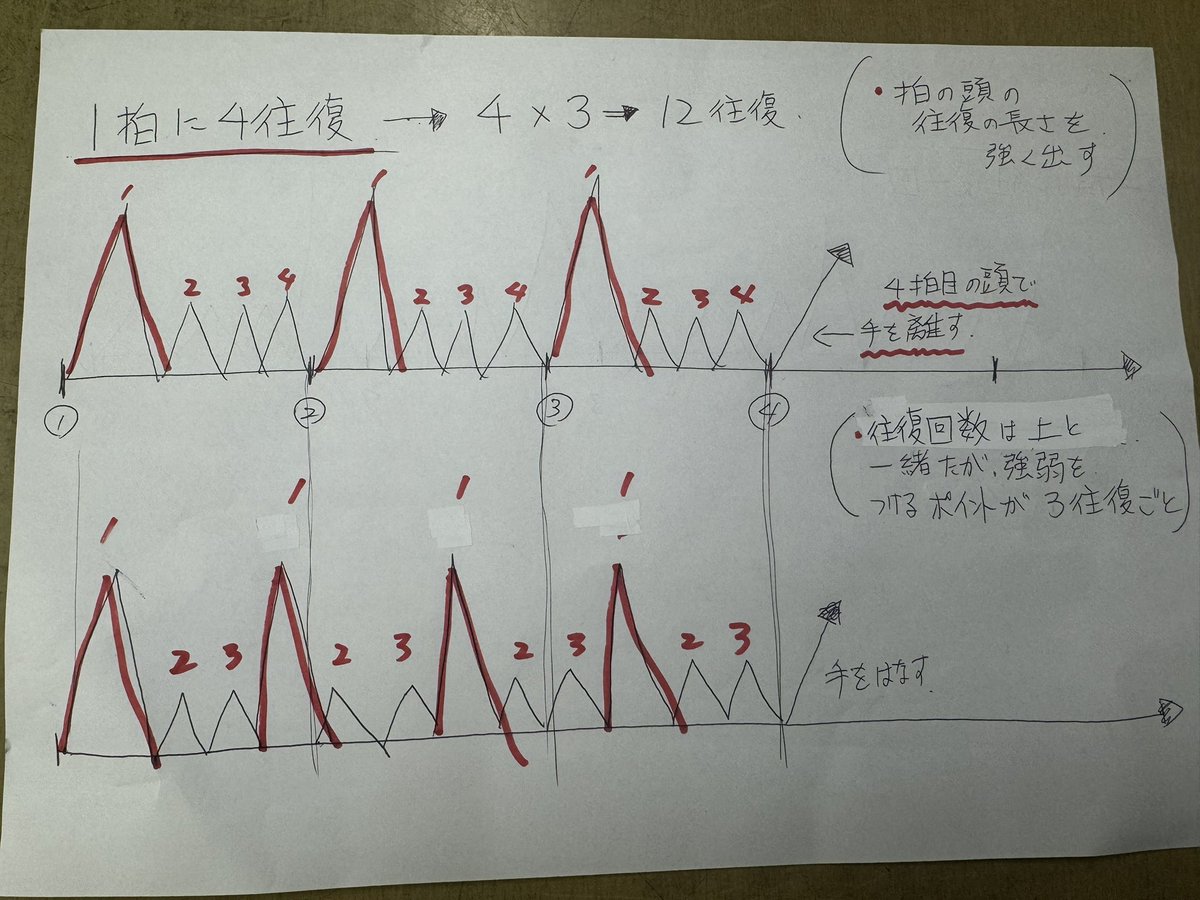 1拍に4往復 → 4×3⇒12往復.
・拍の頭の
往復の長さを
強く出す
1 2 3 4 1 2 3 4 1 2 3 4
4拍目の頭で
← 手を離す.
① ② ③ ④
・往復回数は上と
一緒だが、強弱を
つけるポイントが3往復ごと
1 2 3 1 2 3 1 2 3 1 2 3
手をはなす.